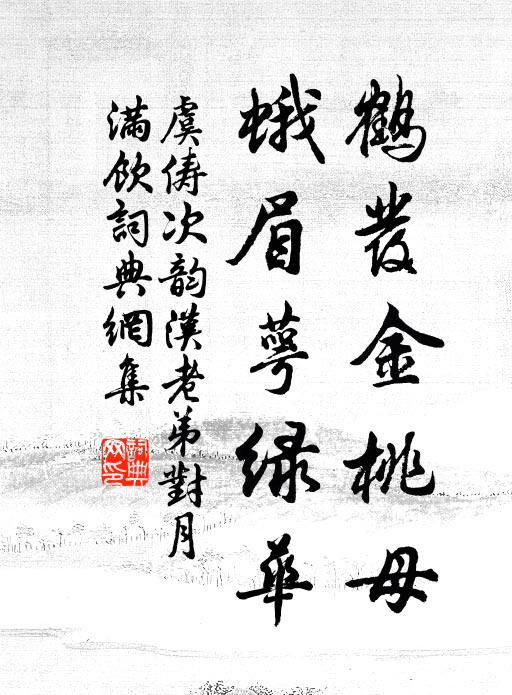 鶴發金桃母
蛾眉萼綠華
虞儔次韵漢老弟對月
滿飲詞典網集
詞典網印